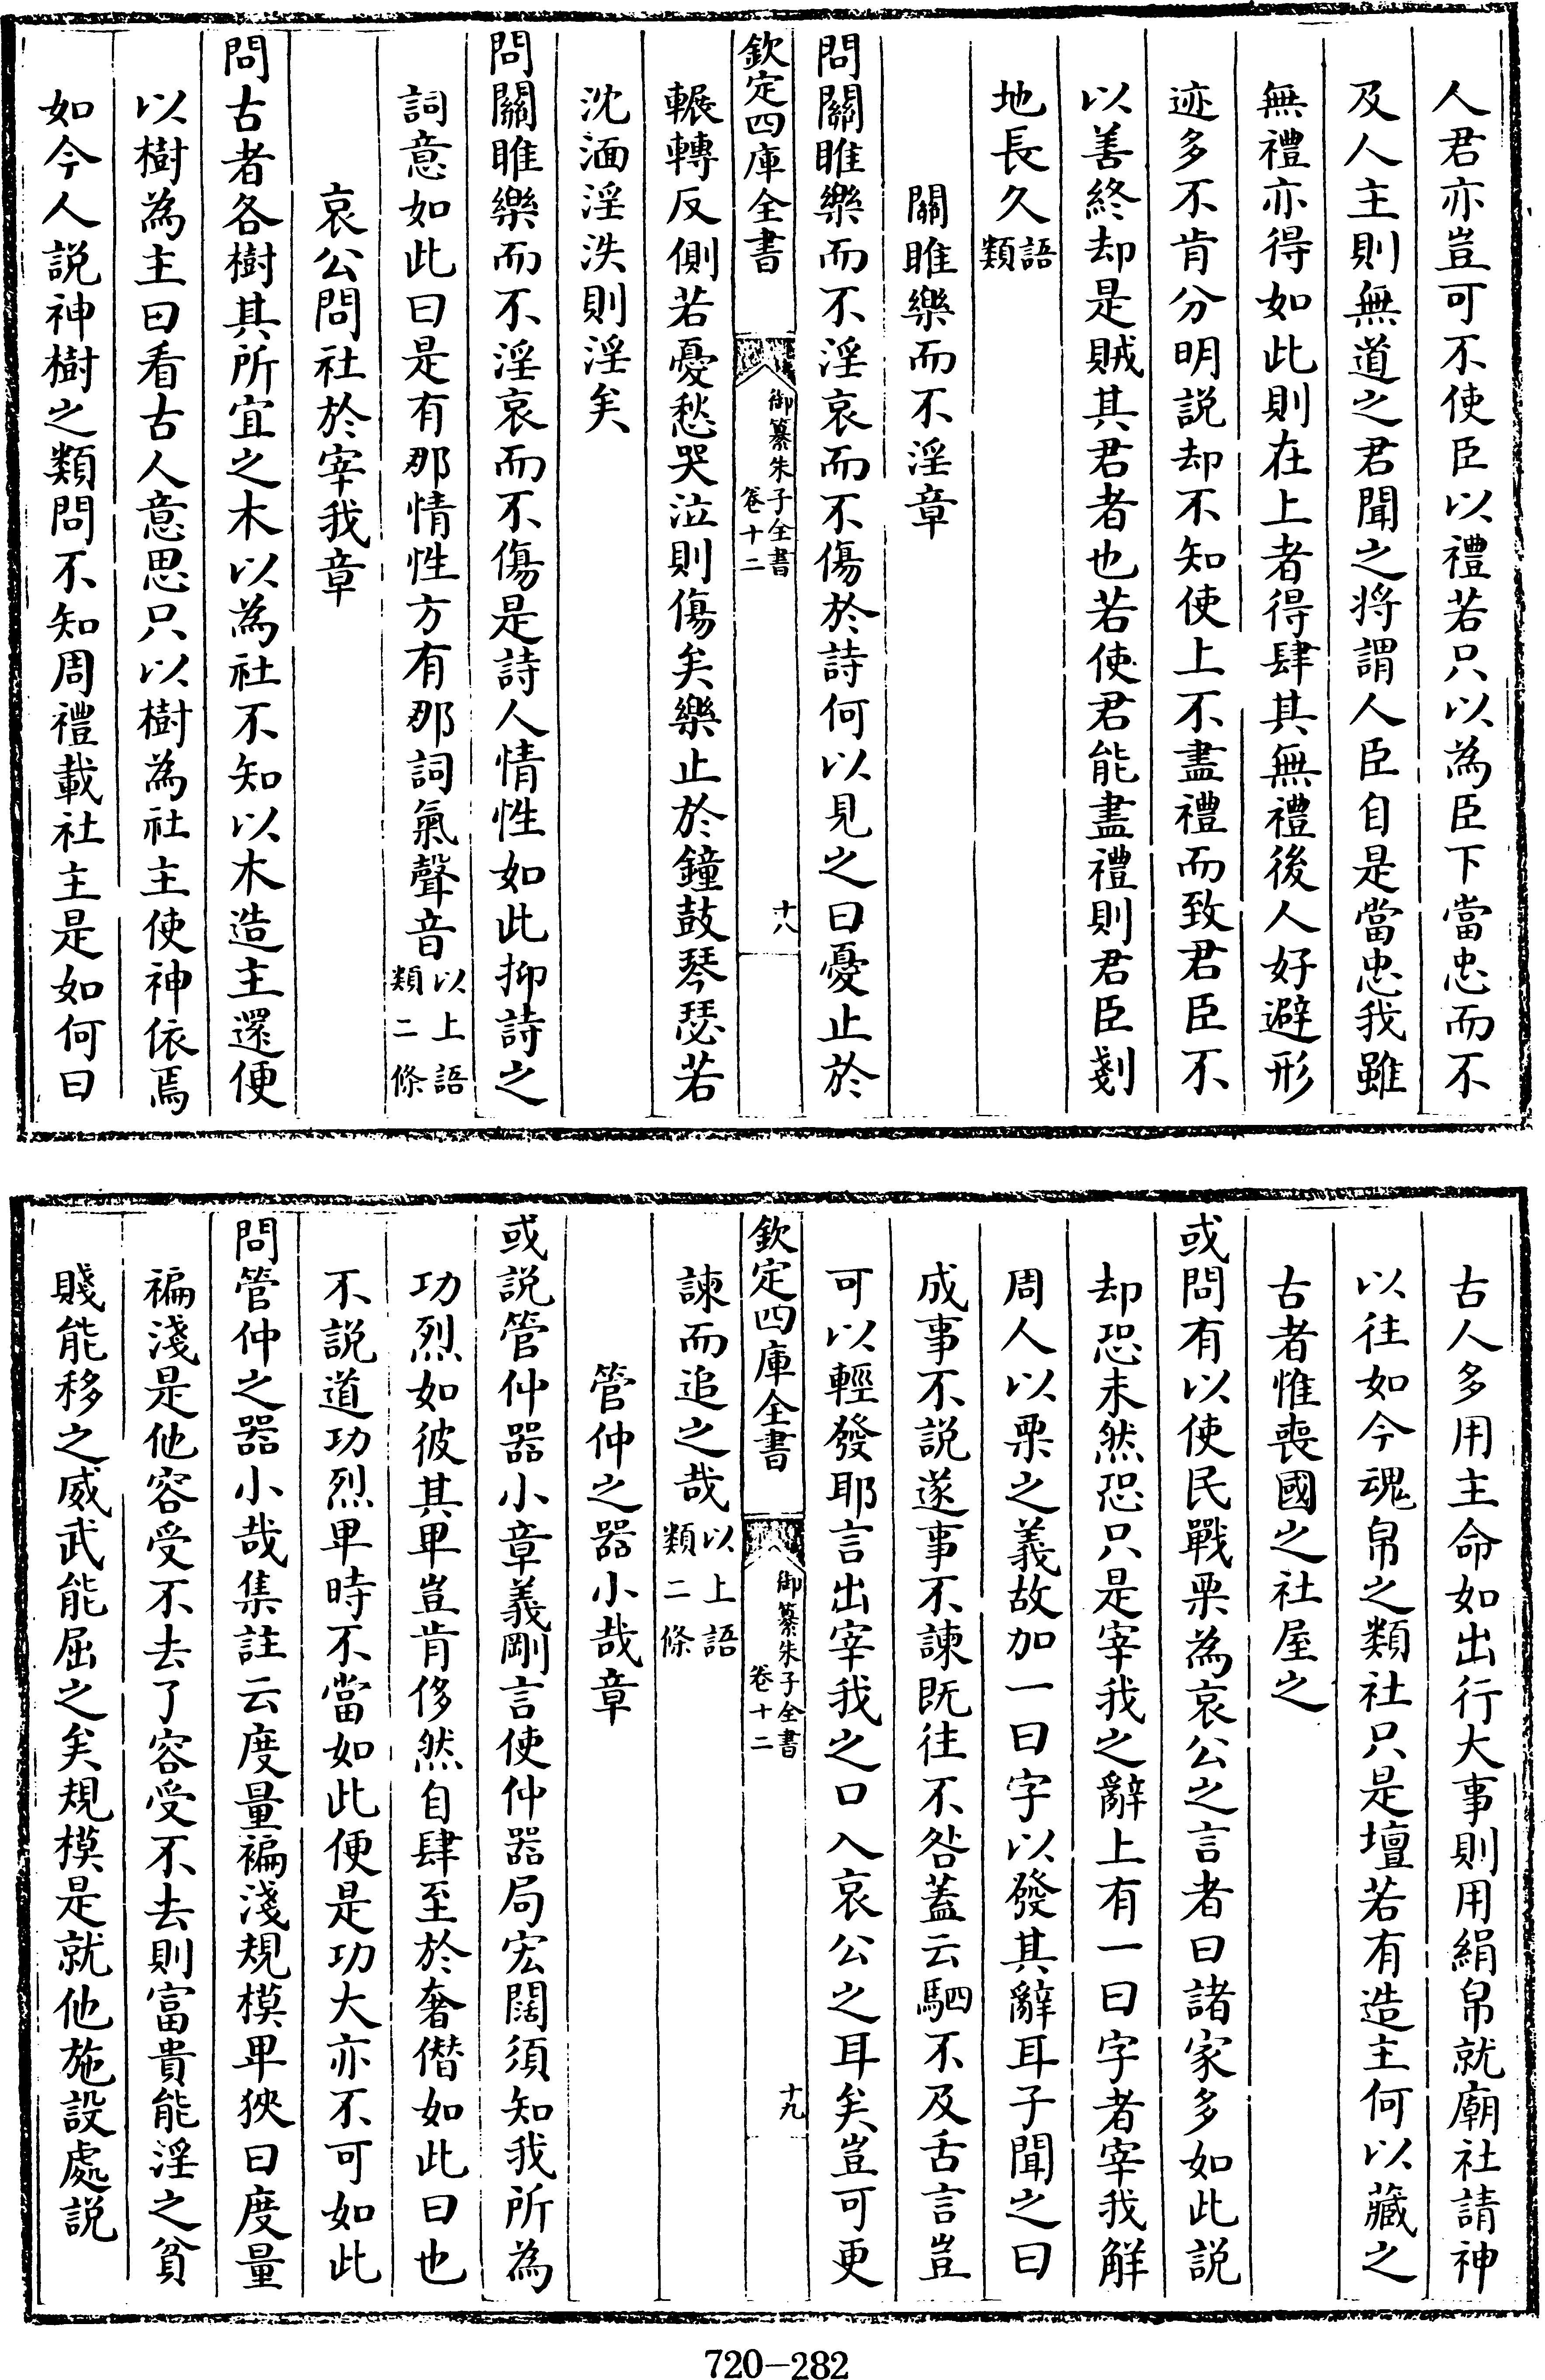 人君亦豈可不使臣以禮若只以為臣下當忠而不
及人主則無道之君聞之将謂人臣自是當忠我雖
無禮亦得如此則在上者得肆其無禮後人好避形
迹多不肯分明説却不知使上不盡禮而致君臣不
以善終却是賊其君者也若使君能盡禮則君臣剗
地長久語類
關睢樂而不淫章
問關睢樂而不淫哀而不傷於詩何以見之曰憂止於
欽定四庫全書
御纂朱子全書
卷十二
十八
輾轉反側若憂愁哭泣則傷矣樂止於鐘鼓琴瑟若
沈湎淫泆則淫矣
問關睢樂而不淫哀而不傷是詩人情性如此抑詩之
詞意如此曰是有那情性方有那詞氣聲音以上語類二條
哀公問社於宰我章
問古者各樹其所宜之木以為社不知以木造主還便
以樹為主曰看古人意思只以樹為社主使神依焉
如今人説神樹之類問不知周禮載社主是如何曰
古人多用主命如出行大事則用絹帛就廟社請神
以往如今魂帛之類社只是壇若有造主何以藏之
古者惟喪國之社屋之
或問有以使民戰栗為哀公之言者曰諸家多如此説
却恐未然恐只是宰我之辭上有一曰字者宰我解
周人以栗之義故加一曰字以發其辭耳子聞之曰
成事不説遂事不諫既往不咎蓋云駟不及舌言豈
可以輕發耶言出宰我之口入哀公之耳矣豈可更
欽定四庫全書
御纂朱子全書
卷十二
十九
諫而追之哉以上語類二條
管仲之器小哉章
或説管仲器小章義剛言使仲器局宏闊須知我所為
功烈如彼其卑豈肯侈然自肆至於奢僭如此曰也
不説道功烈卑時不當如此便是功大亦不可如此
問管仲之器小哉集註云度量褊淺規模卑狹曰度量
褊淺是他容受不去了容受不去則富貴能淫之貧
賤能移之威武能屈之矣規模是就他施設處説
720-282